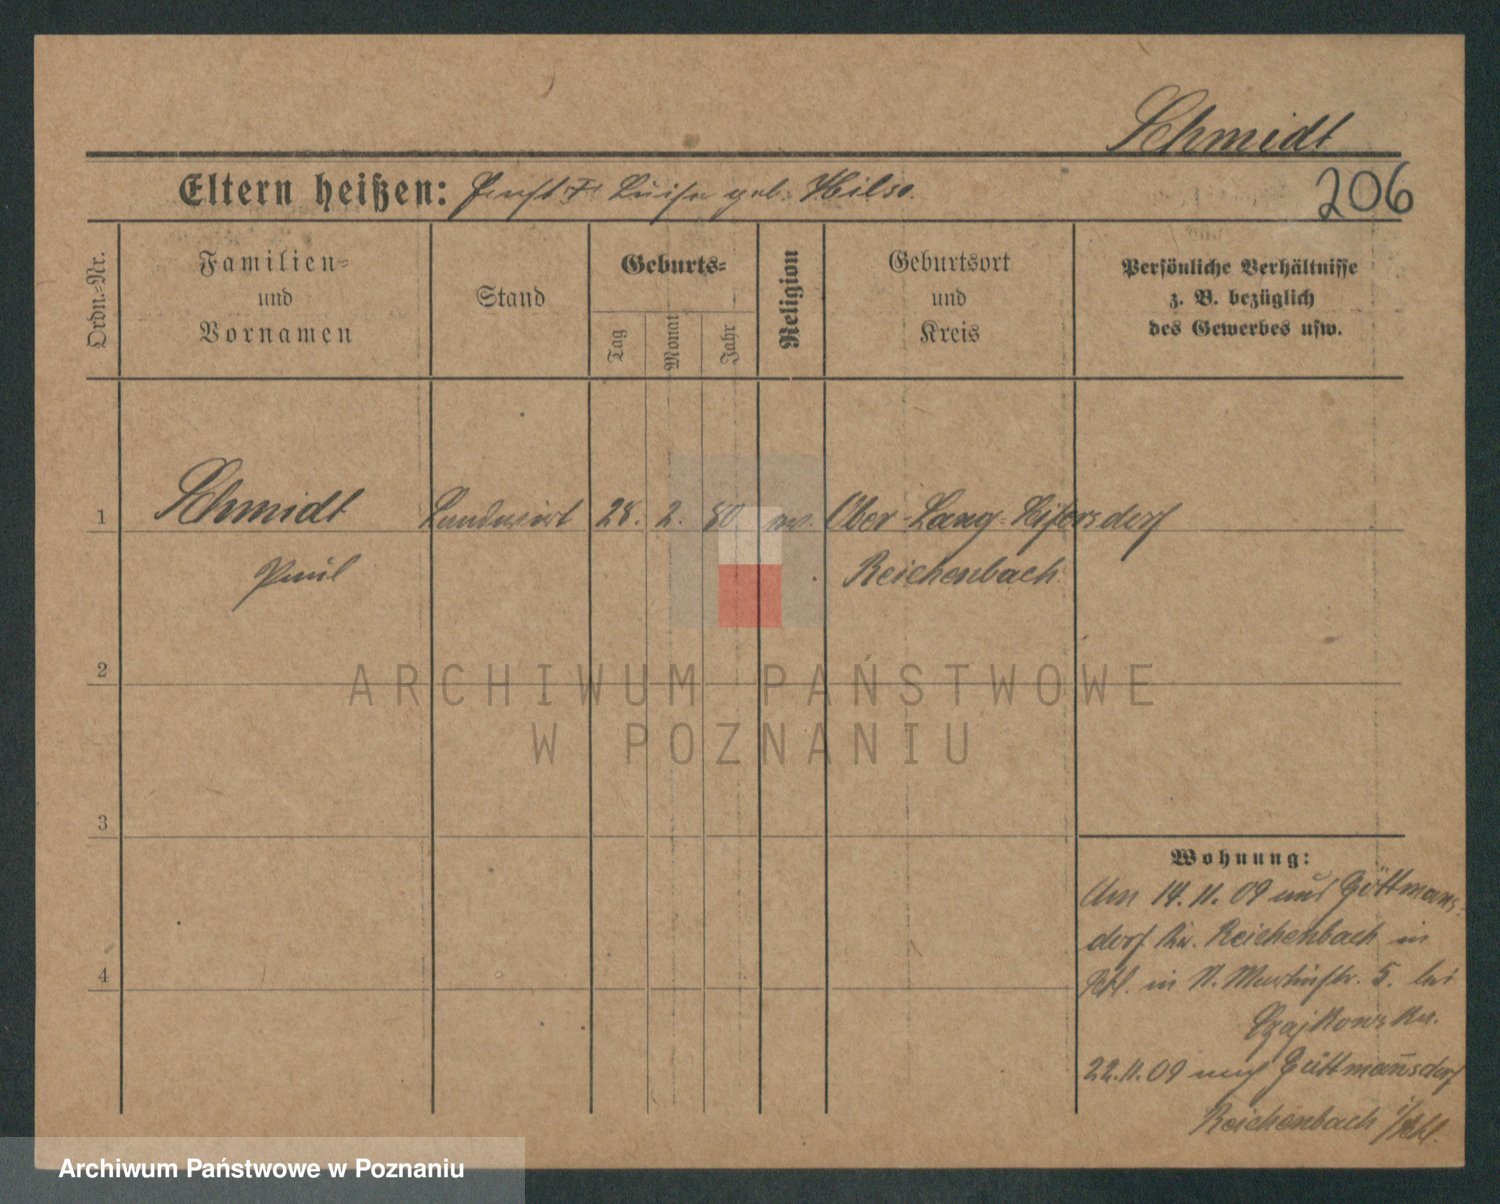 Schmidt
206
Eltern heißen: Luise geb. Hilse.
Ordn.-Nr.
Familien-
und
Vornamen
Stand
Geburts-
Tag
Monat
Jahr
Religion
Geburtsort
und
Kreis
Persönliche Verhältnisse
z. B. bezüglich
des Gewerbes usw.
1
Schmidt Landwirt 28. 2. 80. Ober-Lang-Seifersdorf
Paul Reichenbach
2
3
4
Wohnung:
Am 14. 11. 09 aus Güttmanns-
dorf Kr. Reichenbach in
Schl. in St. Martinstr. 5. bei
Czajkowska.
22.11.09 nach Güttmannsdorf
Reichenbach i/Schl.
ARCHIWUM PAŃSTWOWE
W POZNANIU
Archiwum Państwowe w Poznaniu